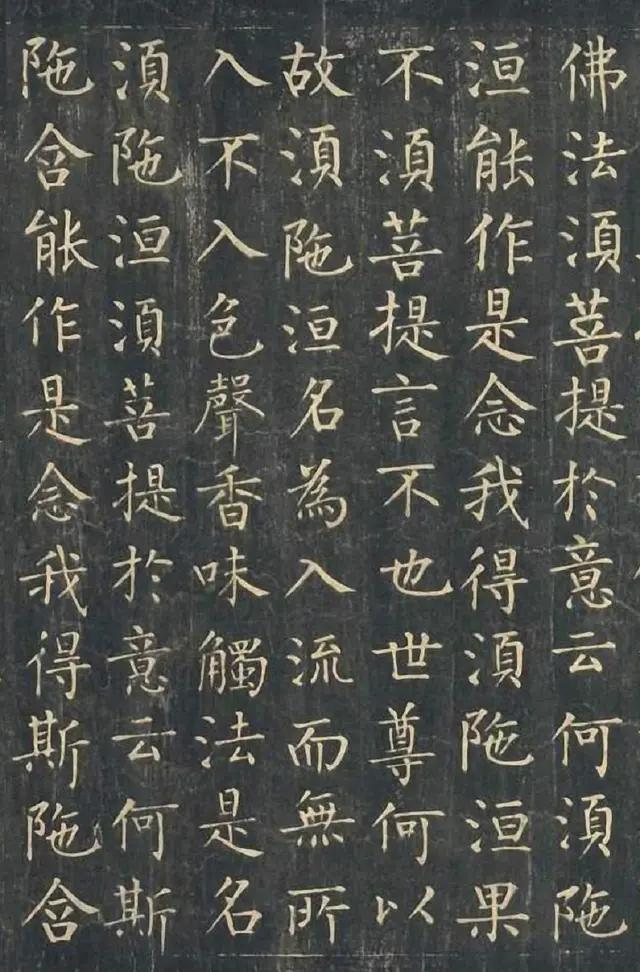 佛法須菩提於意云何須陁
洹能作是念我得須陁洹果
不須菩提言不也世尊何以
故須陁洹名為入流而無所
入不入色聲香味觸法是名
須陁洹須菩提於意云何斯
陁含能作是念我得斯陁含